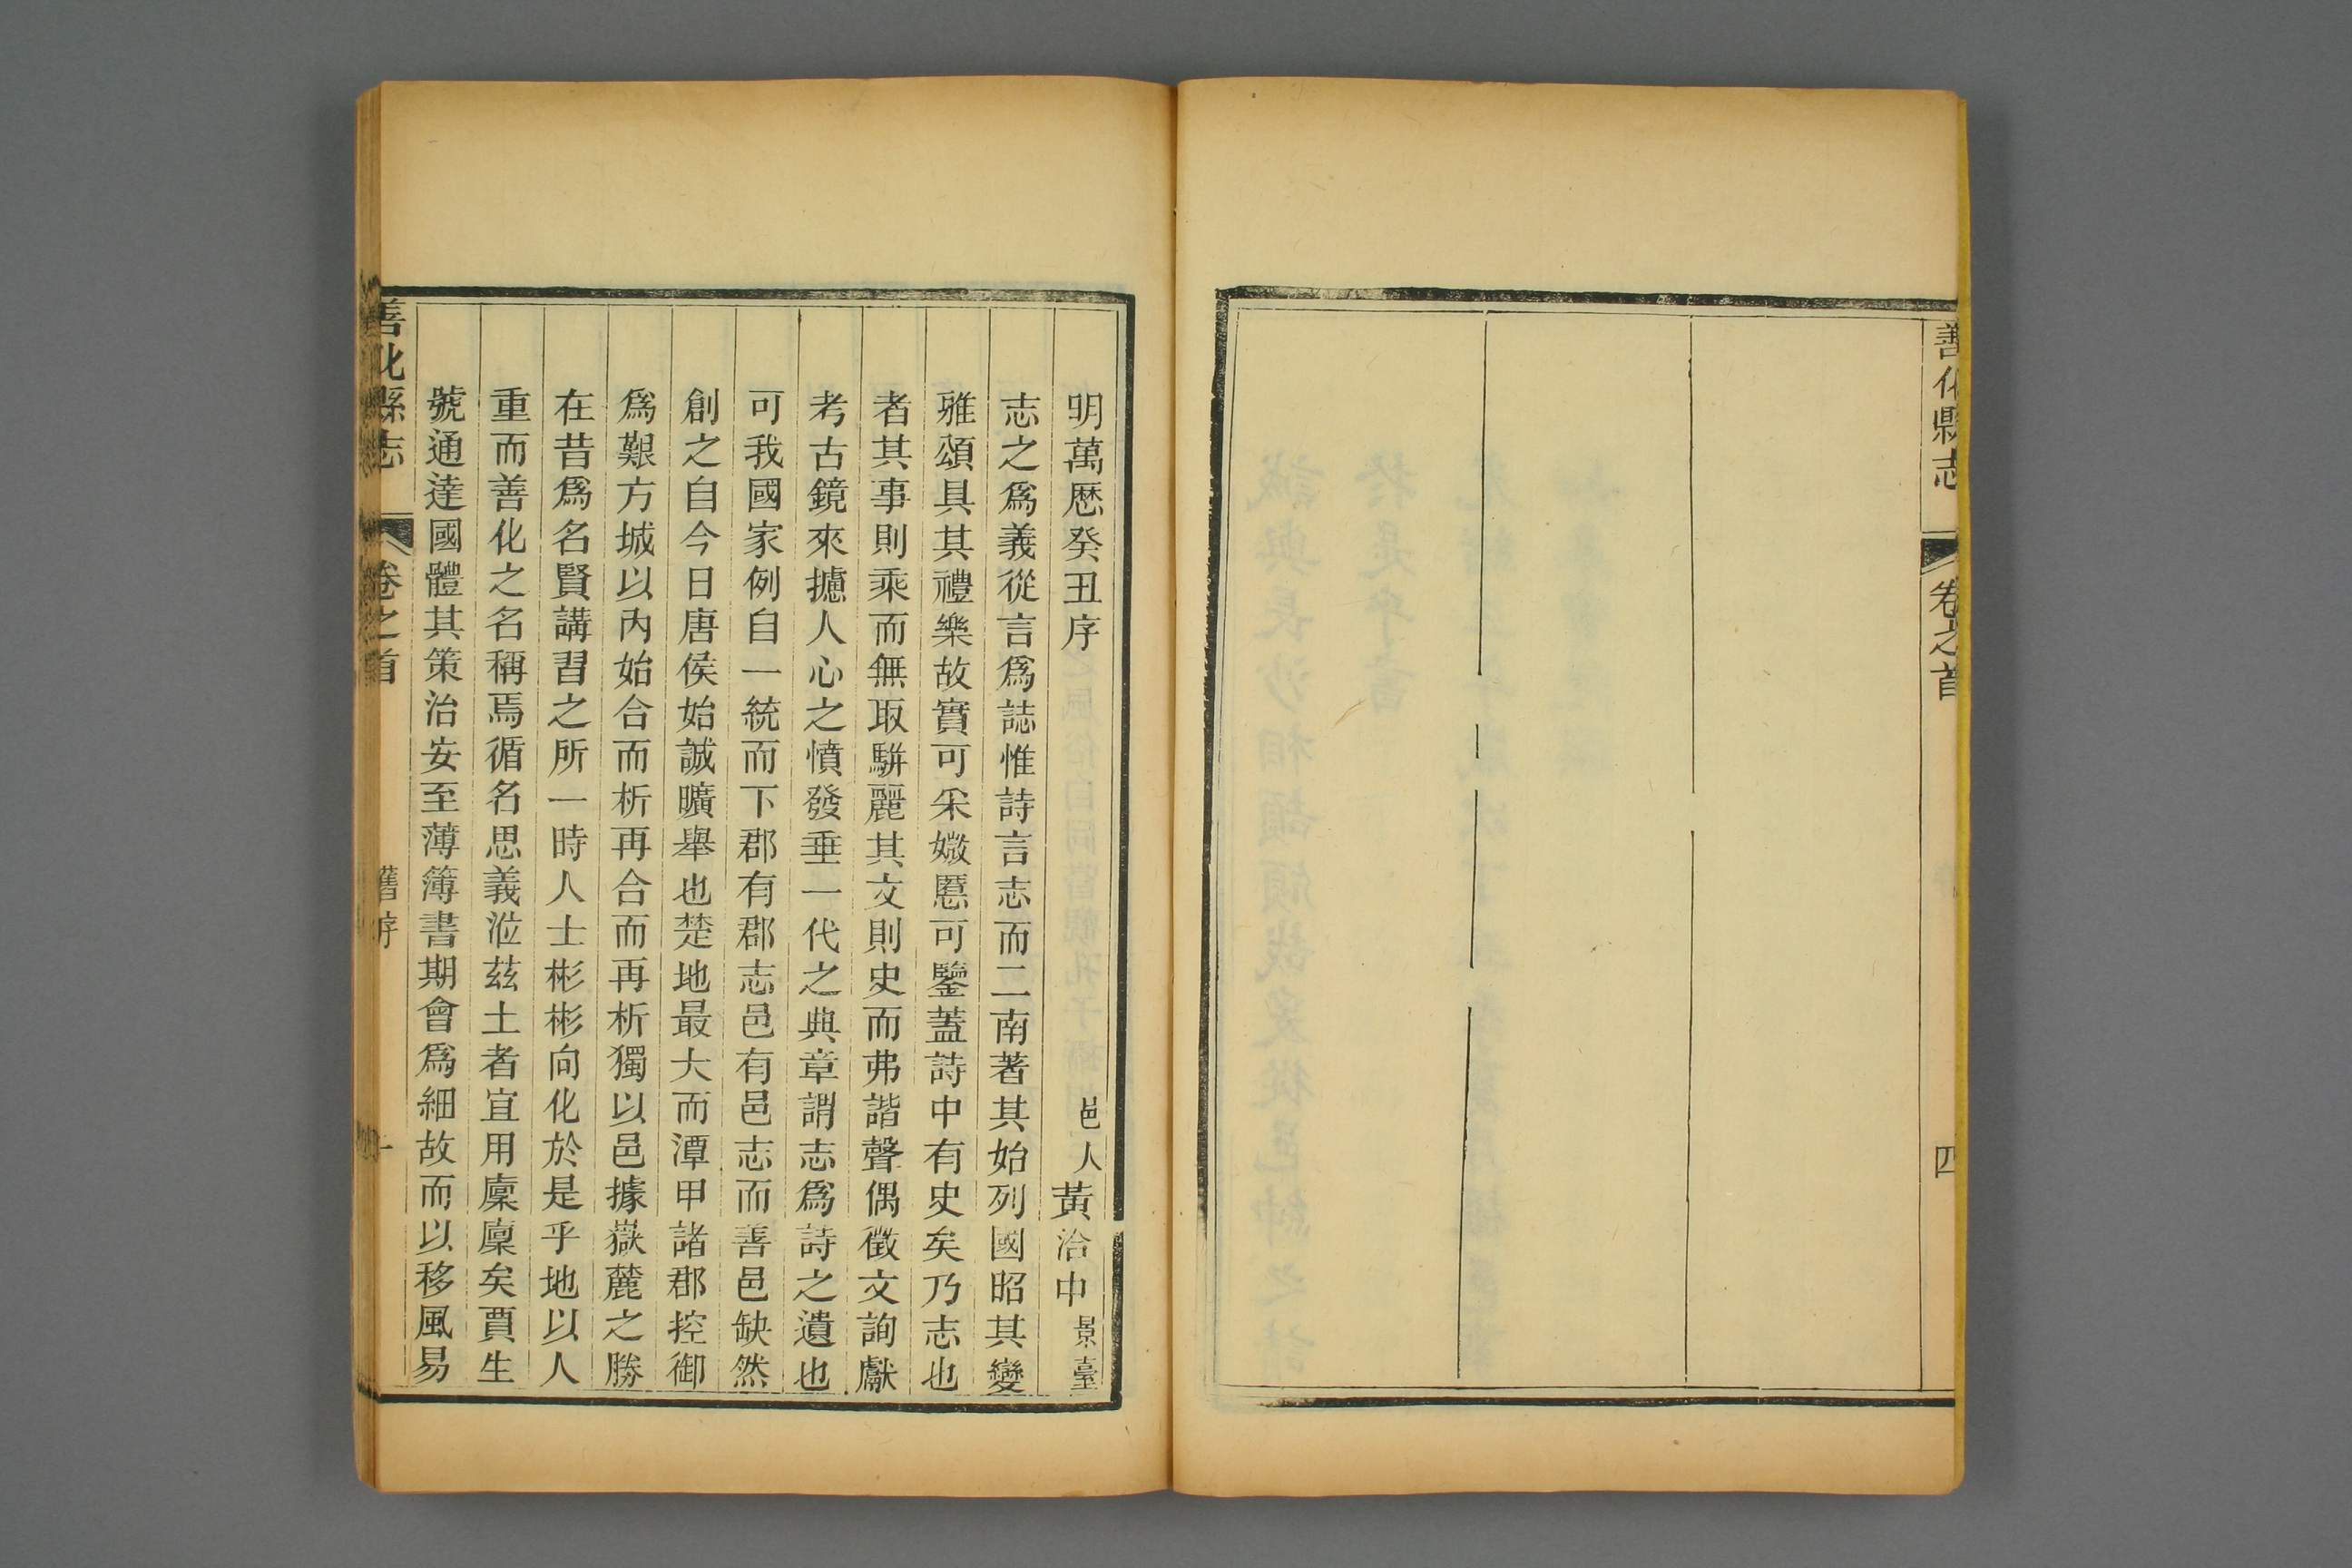 善化縣志
卷之首
四
明萬厯癸丑序
邑人黃洽中景臺
志之爲義從言爲誌惟詩言志而二南著其始列國昭其變
雅頌具其禮樂故實可采媺慝可鑒蓋詩中有史矣乃志也
者其事則乘而無取駢麗其文則史而弗諧聲偶徵文詢獻
考古鏡來攄人心之憤發垂一代之典章謂志爲詩之遺也
可我國家例自一統而下郡有郡志邑有邑志而善邑缺然
創之自今日唐侯始誠曠舉也楚地最大而潭甲諸郡控御
爲艱方城以內始合而析再合而再析獨以邑據嶽麓之勝
在昔爲名賢講習之所一時人士彬彬向化於是乎地以人
重而善化之名稱焉循名思義涖茲土者宜用廩廩矣賈生
號通達國體其策治安至薄簿書期會爲細故而以移風易
善化縣志
卷之首
舊序
一